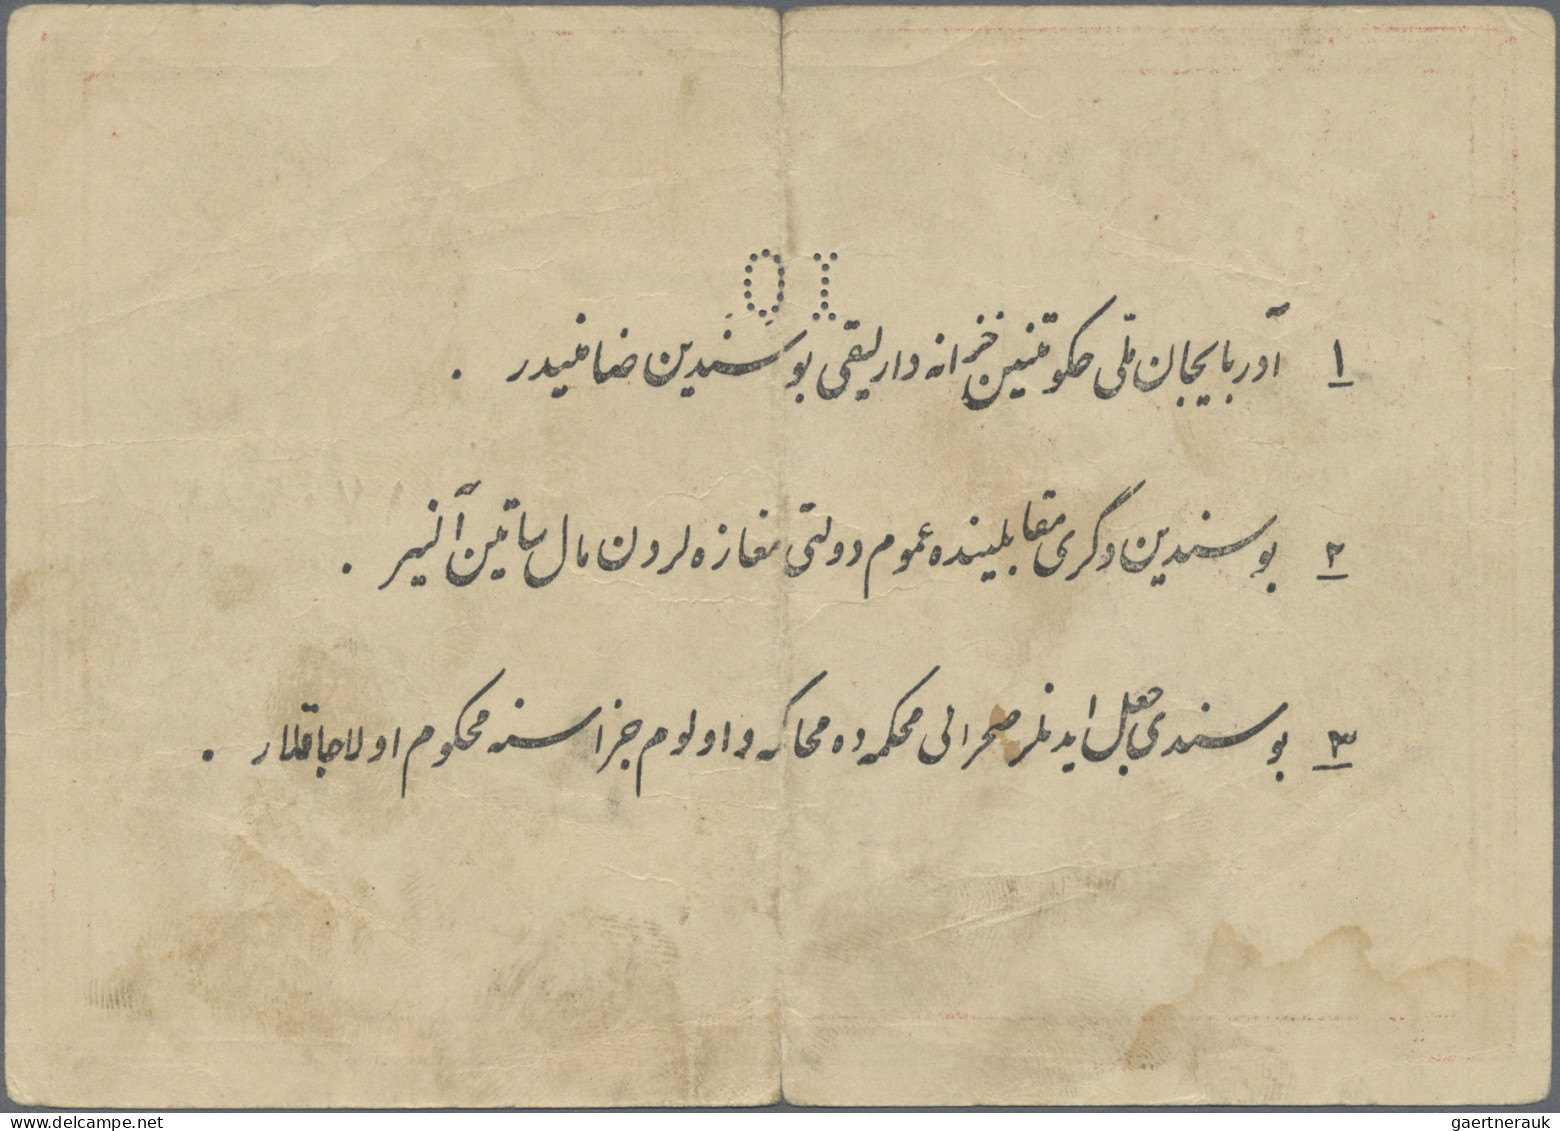 OI
۱ آذربایجان ملی حکومتنین خزانه دارلیقی بو سندین ضامنیدر .
۲ بو سندین دگری مقابلینده عموم دولتی مغازه لردن مال ساتین آلنیر .
۳ بو سندی جعل ایدنلر صحرائی محکمه ده محاکمه و اولوم جزاسنه محکوم اولاجاقلار .
gaertnerauk